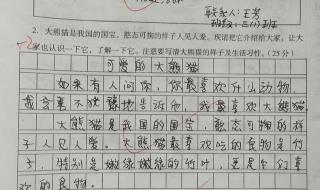 联系人:王芳
2. 大熊猫是我国的国宝，憨态可掬的样子人见人爱。现请把它介绍给大家，让大
家也认识一下它，了解一下它。注意要写清大熊猫的样子及生活习性。(25分)
可爱的大熊猫
如果有人问你，你最喜欢什么动物，
我会毫不犹豫地告诉他，我最喜欢大熊猫。
大熊猫是我国的国宝，憨态可掬的样
子人见人爱。大熊猫最喜欢吃的食物是竹
子，特别是嫩绿嫩绿的竹叶，更是它们喜
欢的食物。